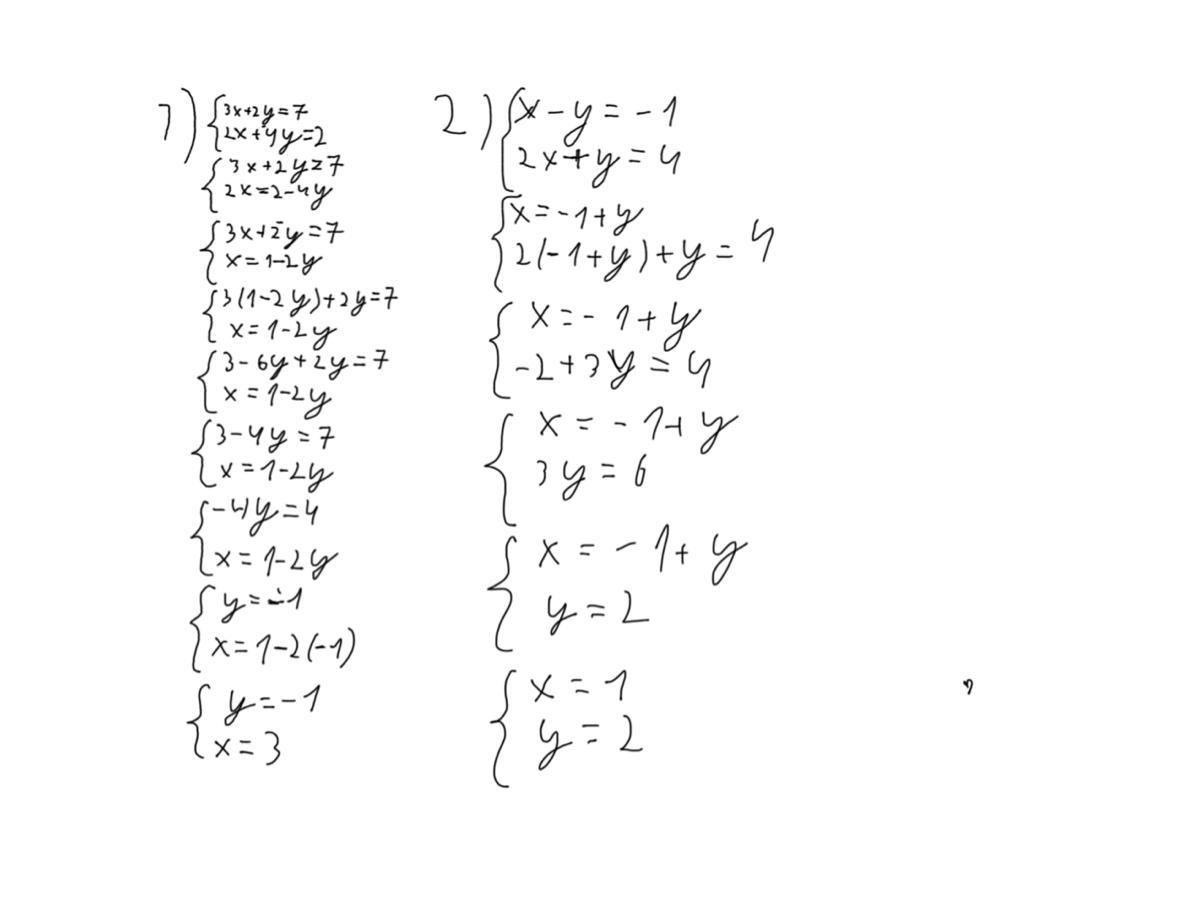 1) 3x+2y=7
2x+4y=2
3x+2y=7
2x=2-4y
3x+2y=7
x=1-2y
3(1-2y)+2y=7
x=1-2y
3-6y+2y=7
x=1-2y
3-4y=7
x=1-2y
-4y=4
x=1-2y
y=-1
x=1-2(-1)
y=-1
x=3
2) x-y=-1
2x+y=4
x=-1+y
2(-1+y)+y=4
x=-1+y
-2+3y=4
x=-1+y
3y=6
x=-1+y
y=2
x=1
y=2